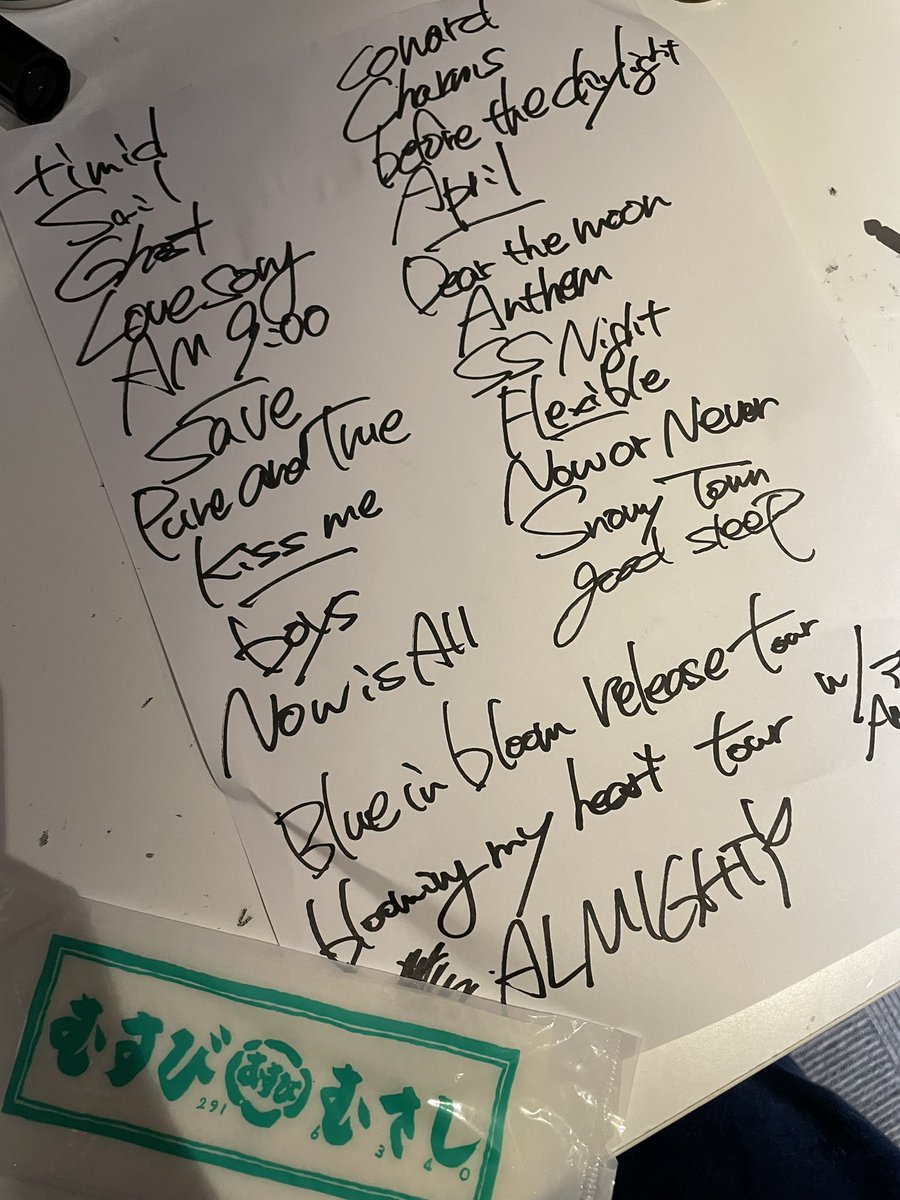 timid
Sail
Ghost
Love song
AM 9:00
Save
Pure and True
Kiss me
boys
Now is All
coward
Charms
before the daylight
April
Dear the moon
Anthem
SS Night
Flexible
Now or Never
Snowy Town
good sleep
Blue in bloom release tour
blooming my heart tour w/
ALMIGHTY
むすび むすび むさし
291
6340